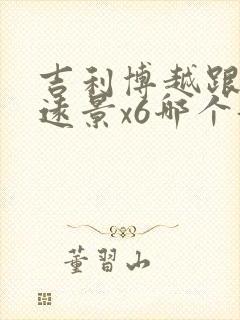 吉利博越跟
远景x6哪个
董習山